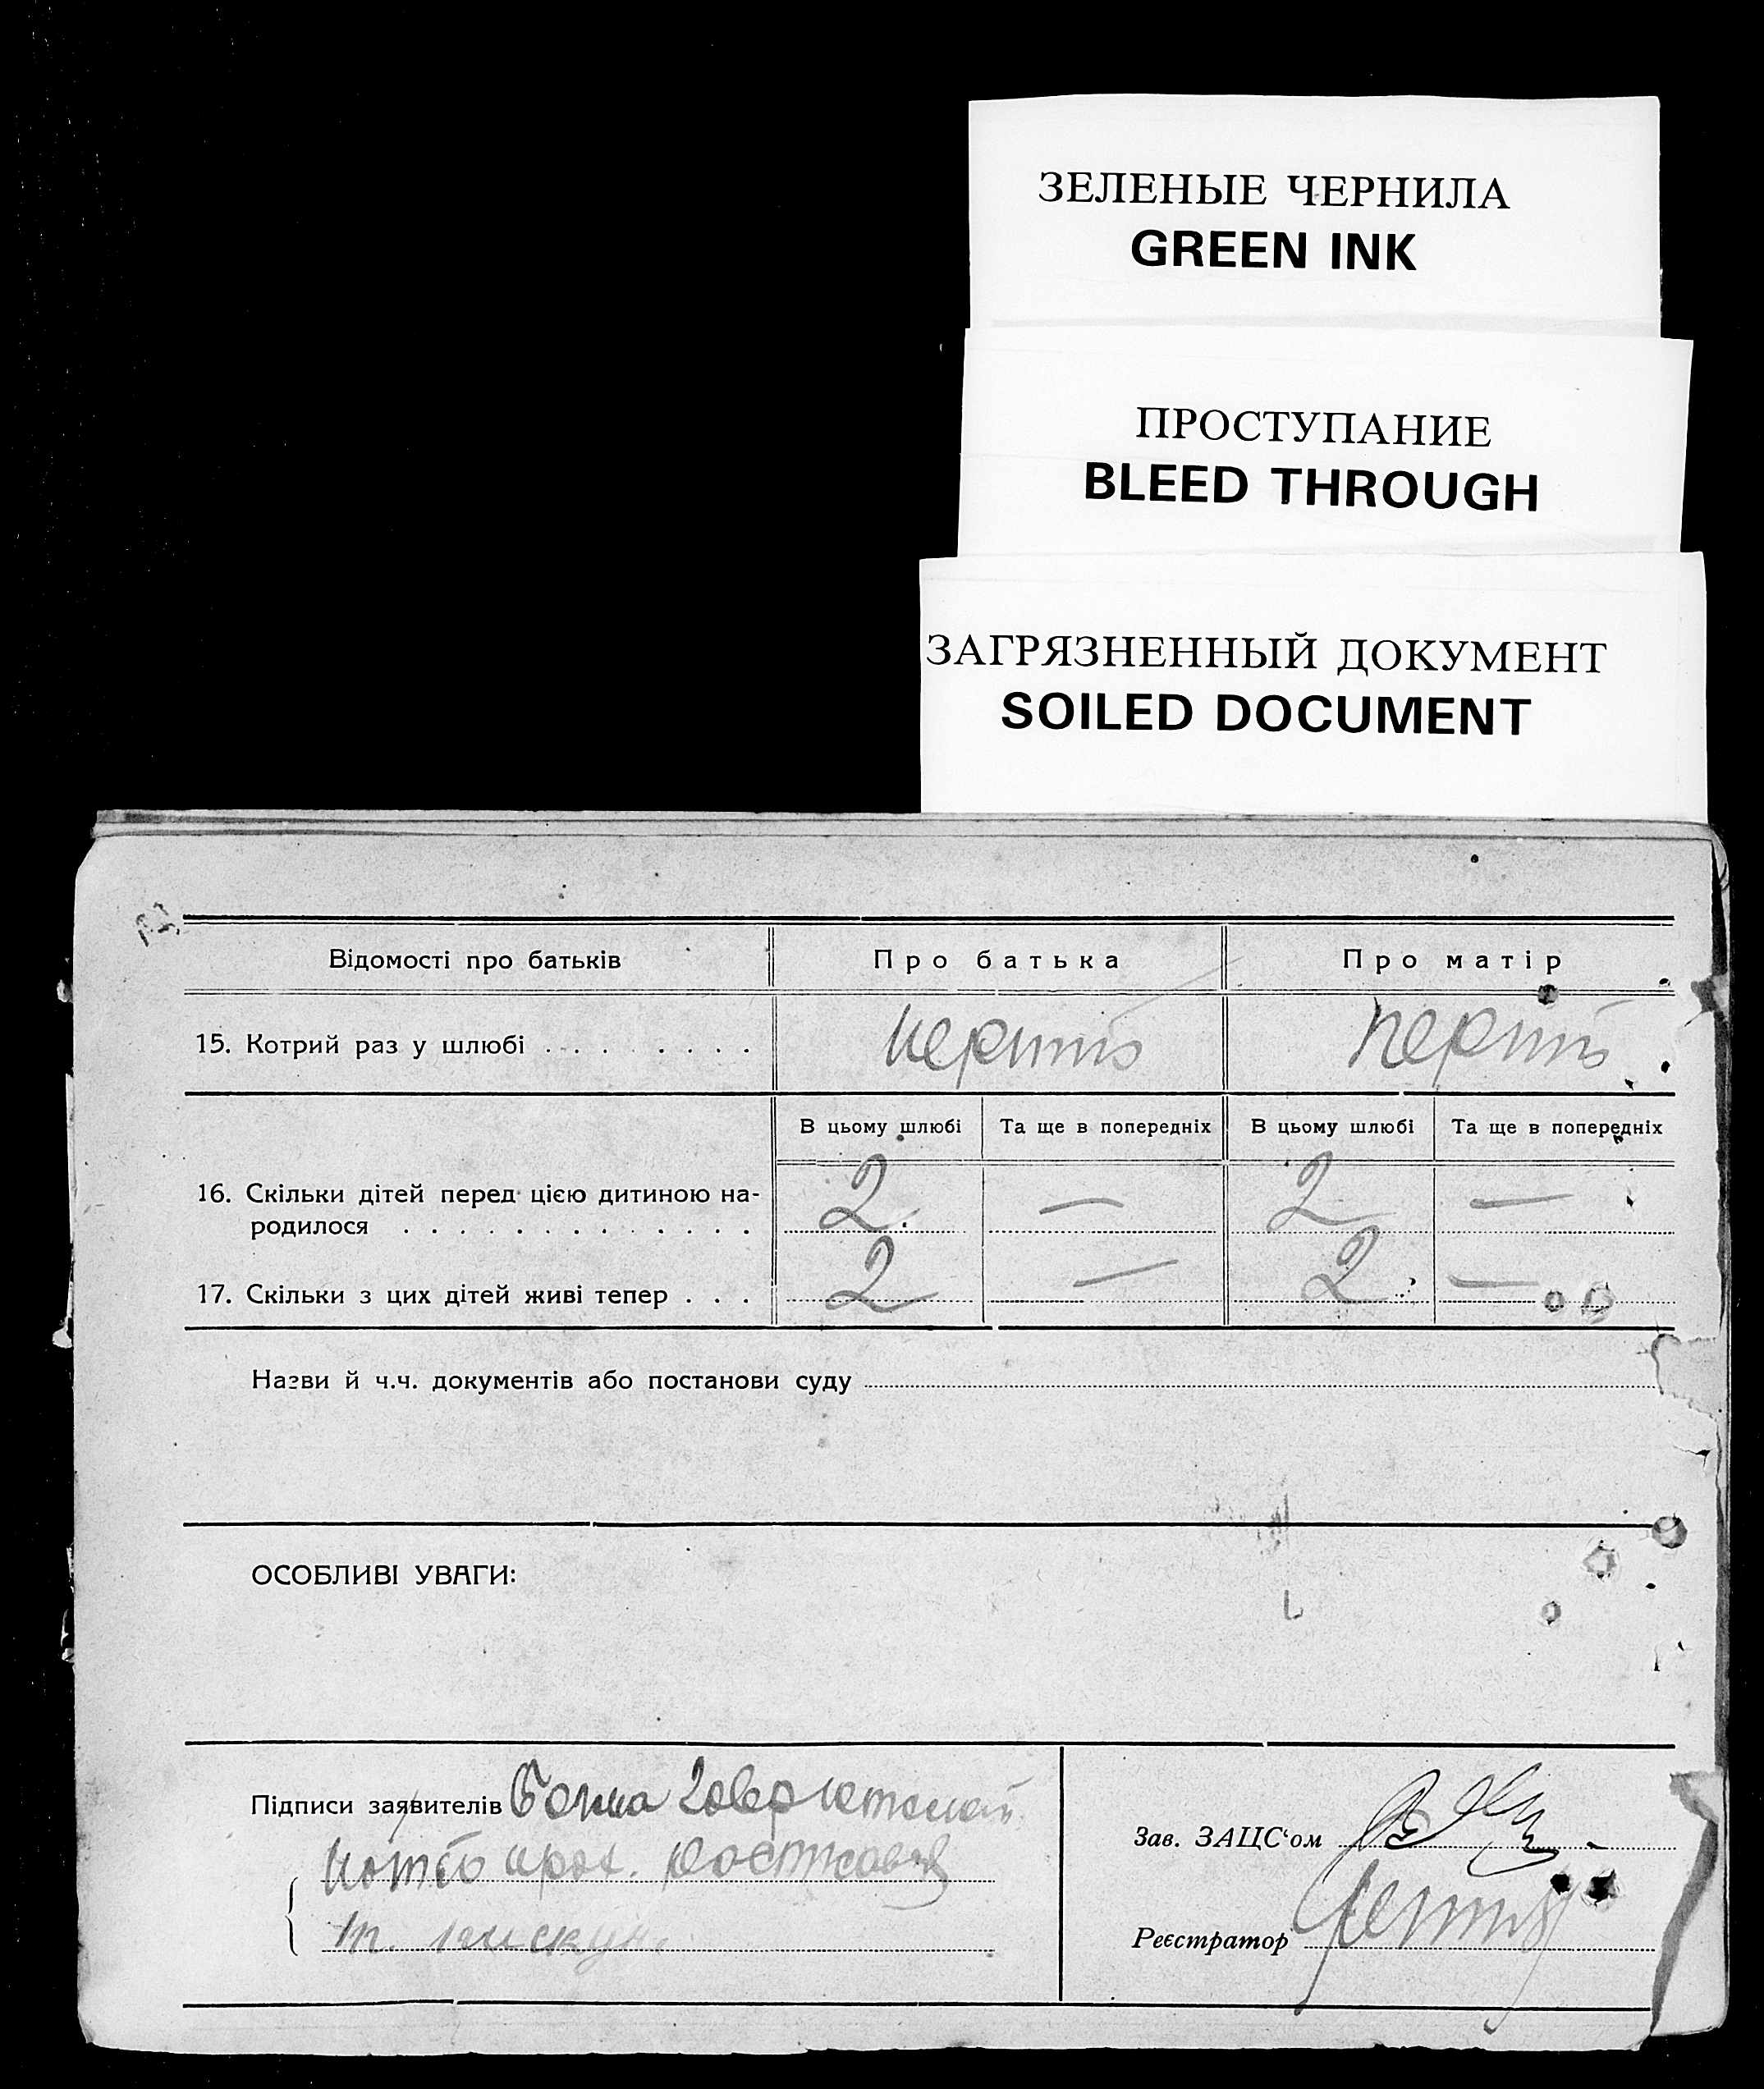 ЗЕЛЕНЫЕ ЧЕРНИЛА
GREEN INK
ПРОСТУПАНИЕ
BLEED THROUGH
ЗАГРЯЗНЕННЫЙ ДОКУМЕНТ
SOILED DOCUMENT
Відомості про батьків Про батька Про матір
15. Котрий раз у шлюбі . . . . . . . .
В цьому шлюбі Та ще в попередніх В цьому шлюбі Та ще в попередніх
16. Скільки дітей перед цією дитиною на-
родилося . . . . . . . . . . . . . 2 — 2 —
17. Скільки з цих дітей живі тепер . . . 2 — 2 —
Назви й ч.ч. документів або постанови суду
ОСОБЛИВІ УВАГИ:
Підписи заявителів
Зав. ЗАЦС‘ом
Реєстратор